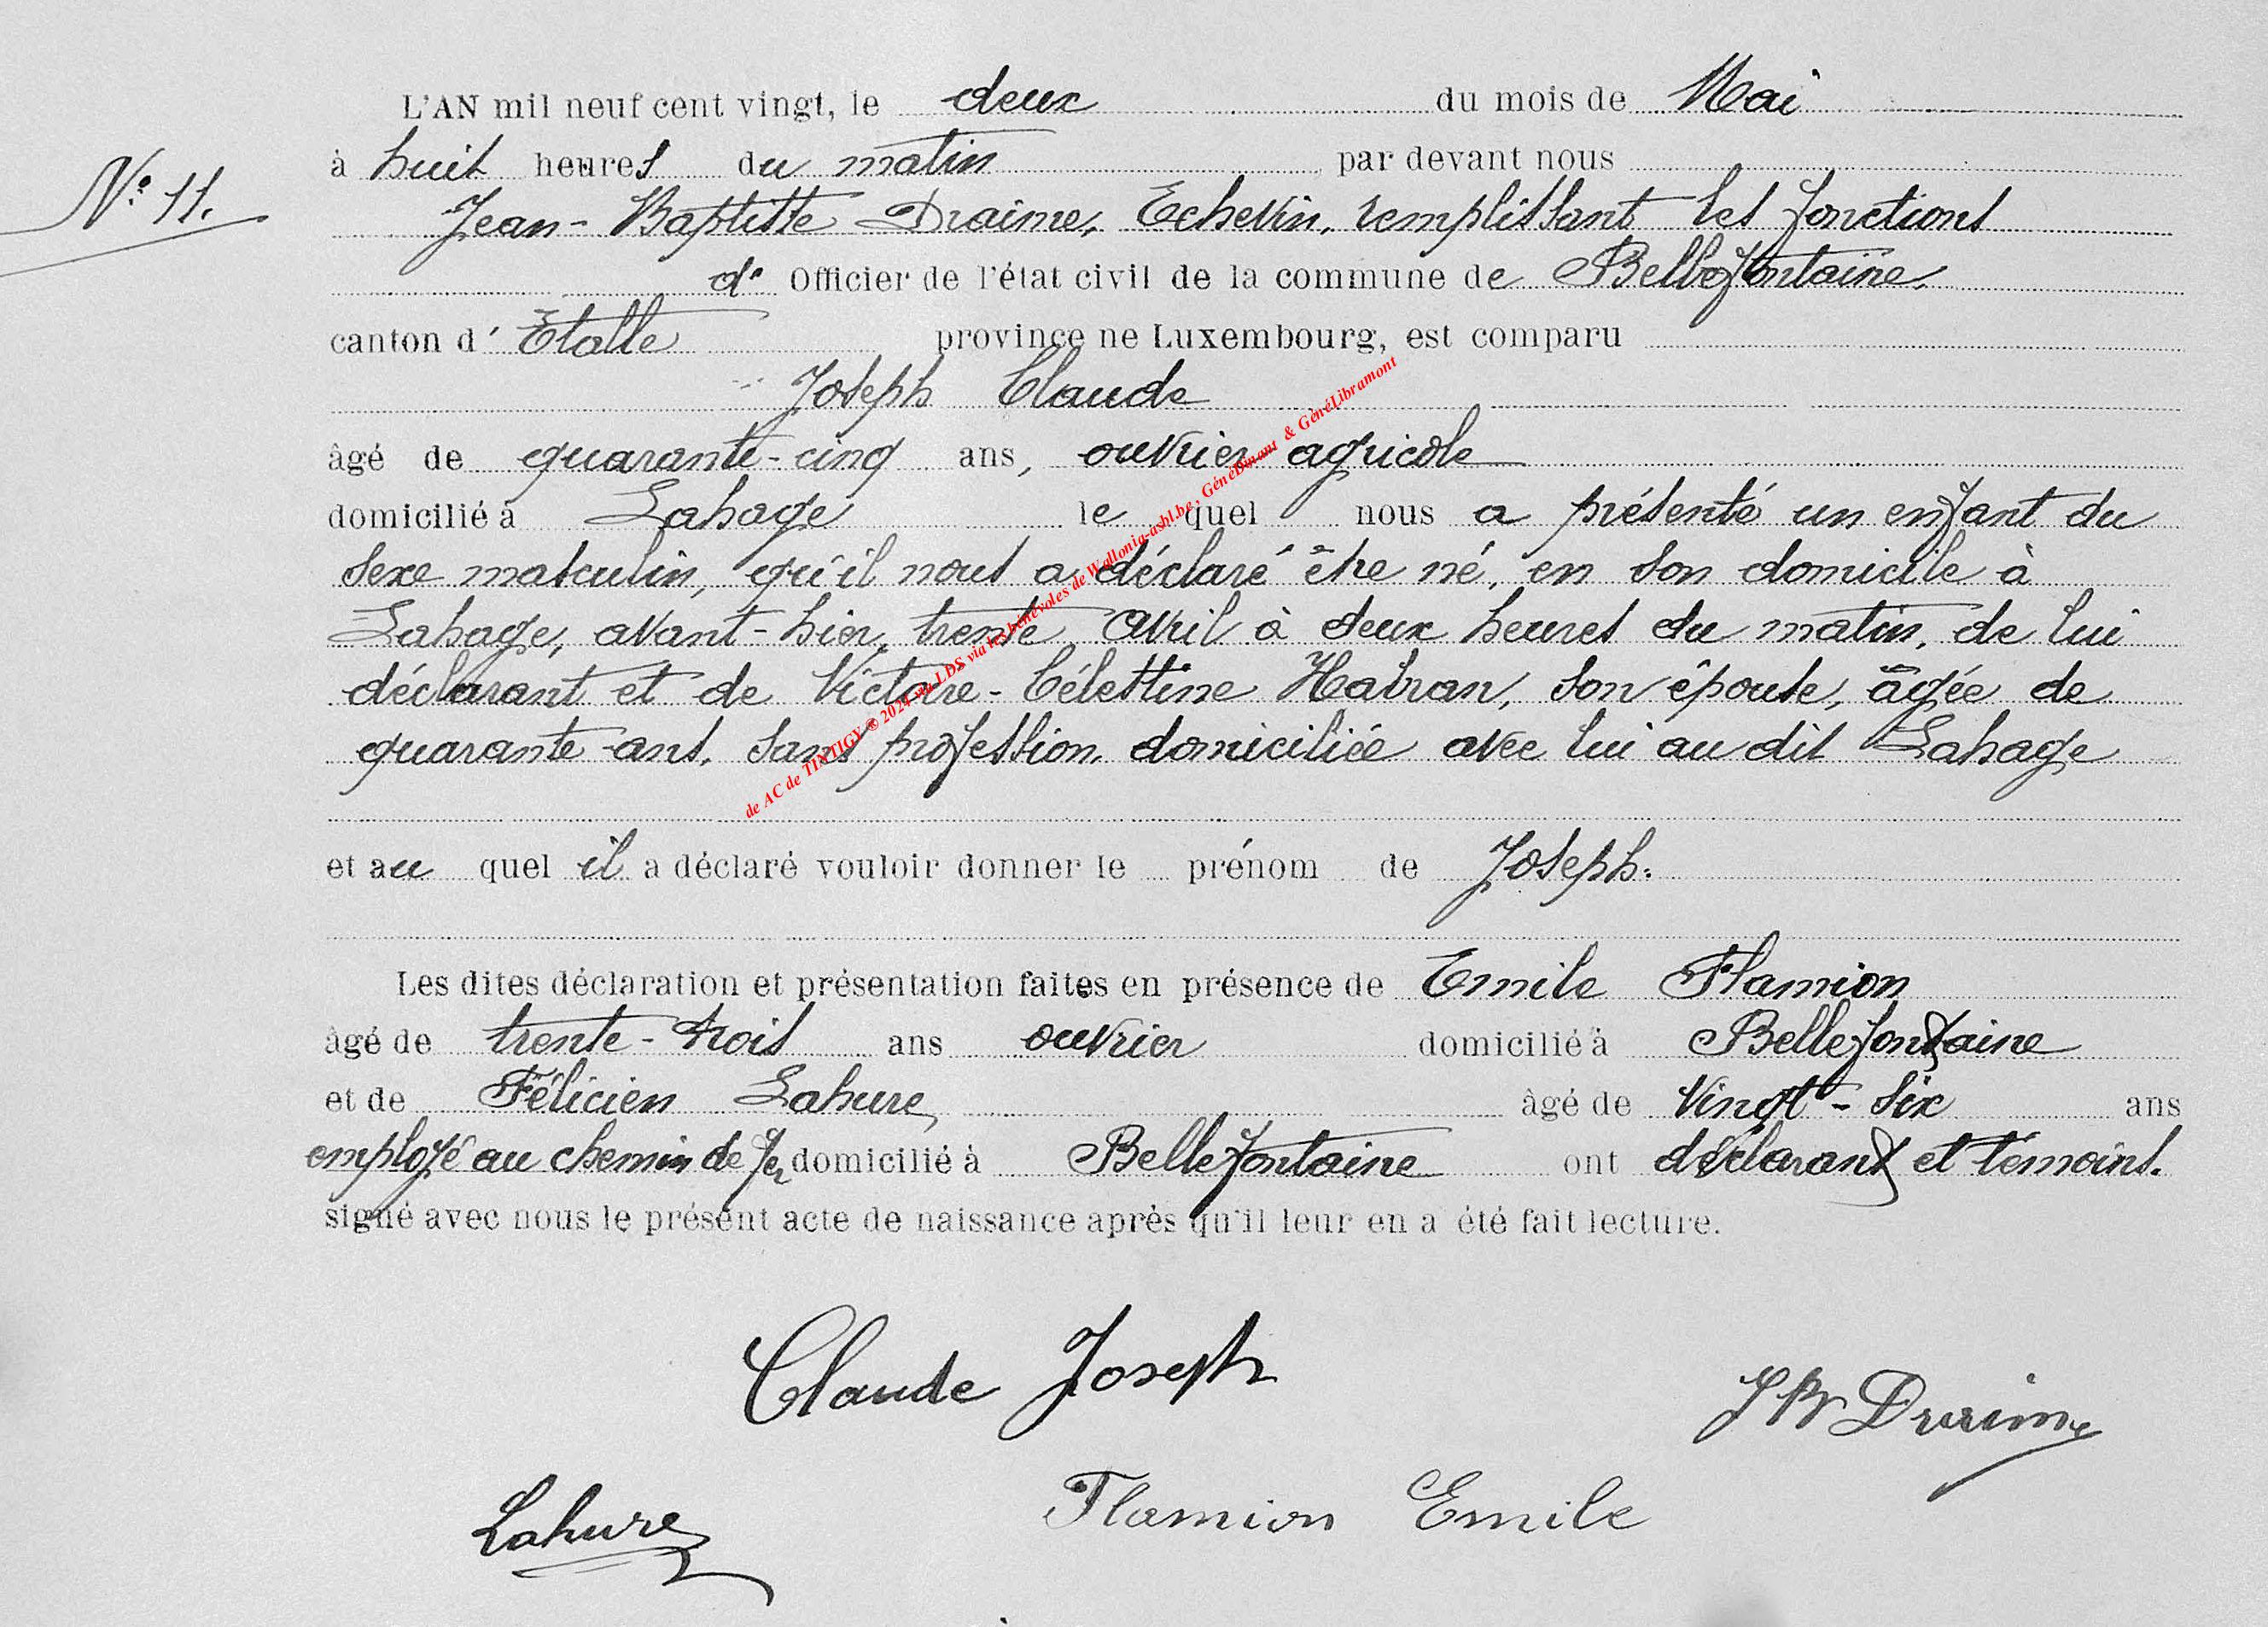 L'AN mil neuf cent vingt, le deux du mois de Mai
N° 11.
à huit heures du matin par devant nous
Jean-Baptiste Draime, Echevin, remplissant les fonctions
d' Officier de l'état civil de la commune de Bellefontaine,
canton d' Etalle province ne Luxembourg, est comparu
Joseph Claude
âgé de quarante-cinq ans, ouvrier agricole
domicilié à Lahage le quel nous a présenté un enfant du
sexe masculin, qu'il nous a déclaré être né, en son domicile à
Lahage, avant-hier, trente avril à deux heures du matin, de lui
déclarant et de Victore-Célestine Habran, son épouse, âgée de
quarante-ans, sans profession, domiciliée avec lui au dit Lahage
de AC de TINTIGY ® 2024 via LDS via les bénévoles de Wallonia-asbl.be, GénéDinant & GénéLibramont
et au quel il a déclaré vouloir donner le prénom de Joseph.
Les dites déclaration et présentation faites en présence de Emile Flamion
âgé de trente-trois ans ouvrier domicilié à Bellefontaine
et de Félicien Lahure, âgé de vingt-six ans
employé au chemin de fer domicilié à Bellefontaine ont déclarant et témoins.
signé avec nous le présent acte de naissance après qu'il leur en a été fait lecture.
Claude Joseph
JB Draime
Lahure
Flamion Emile